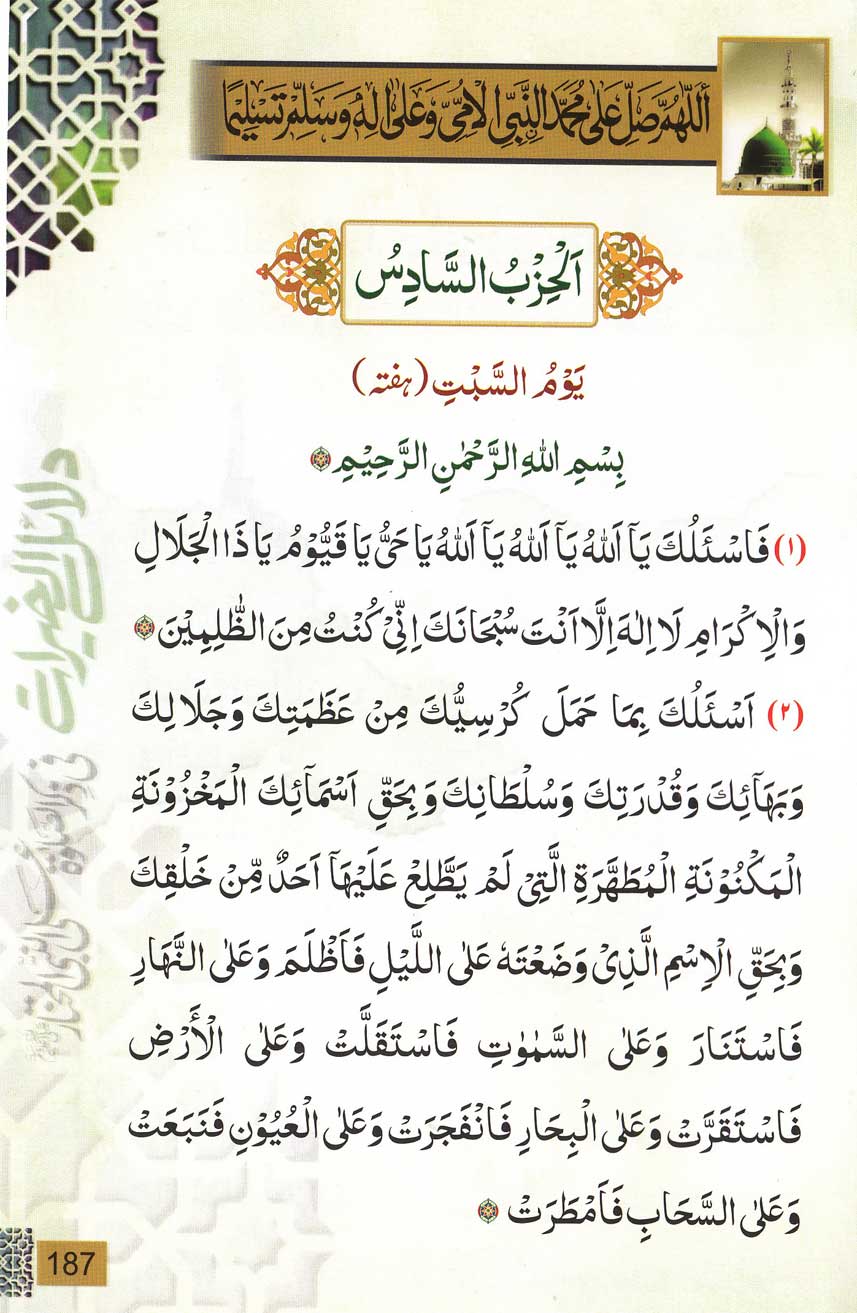 اَللّٰهُمَّ صَلِّ عَلٰی مُحَمَّدٍ النَّبِيِّ الْاُمِّيِّ وَعَلٰی اٰلِهٖ وَسَلِّمْ تَسْلِيْمًا
اَلْحِزْبُ السَّادِسُ
يَوْمُ السَّبْتِ (ہفتہ)
بِسْمِ اللهِ الرَّحْمٰنِ الرَّحِيْمِ
(۱) فَاَسْئَلُكَ يَآ اَللهُ يَآ اَللهُ يَآ اَللهُ يَا حَيُّ يَا قَيُّوْمُ يَا ذَا الْجَلَالِ
وَالْاِكْرَامِ لَا اِلٰهَ اِلَّا اَنْتَ سُبْحَانَكَ اِنِّيْ كُنْتُ مِنَ الظّٰلِمِيْنَ
(۲) اَسْئَلُكَ بِمَا حَمَلَ كُرْسِيُّكَ مِنْ عَظَمَتِكَ وَجَلَالِكَ
وَبَهَآئِكَ وَقُدْرَتِكَ وَسُلْطَانِكَ وَبِحَقِّ اَسْمَآئِكَ الْمَخْزُوْنَةِ
الْمَكْنُوْنَةِ الْمُطَهَّرَةِ الَّتِيْ لَمْ يَطَّلِعْ عَلَيْهَآ اَحَدٌ مِّنْ خَلْقِكَ
وَبِحَقِّ الْاِسْمِ الَّذِيْ وَضَعْتَهٗ عَلَى اللَّيْلِ فَاَظْلَمَ وَعَلَى النَّهَارِ
فَاسْتَنَارَ وَعَلَى السَّمٰوٰتِ فَاسْتَقَلَّتْ وَعَلَى الْأَرْضِ
فَاسْتَقَرَّتْ وَعَلَى الْبِحَارِ فَانْفَجَرَتْ وَعَلَى الْعُيُوْنِ فَنَبَعَتْ
وَعَلَى السَّحَابِ فَاَمْطَرَتْ
دلائل الخیرات
187